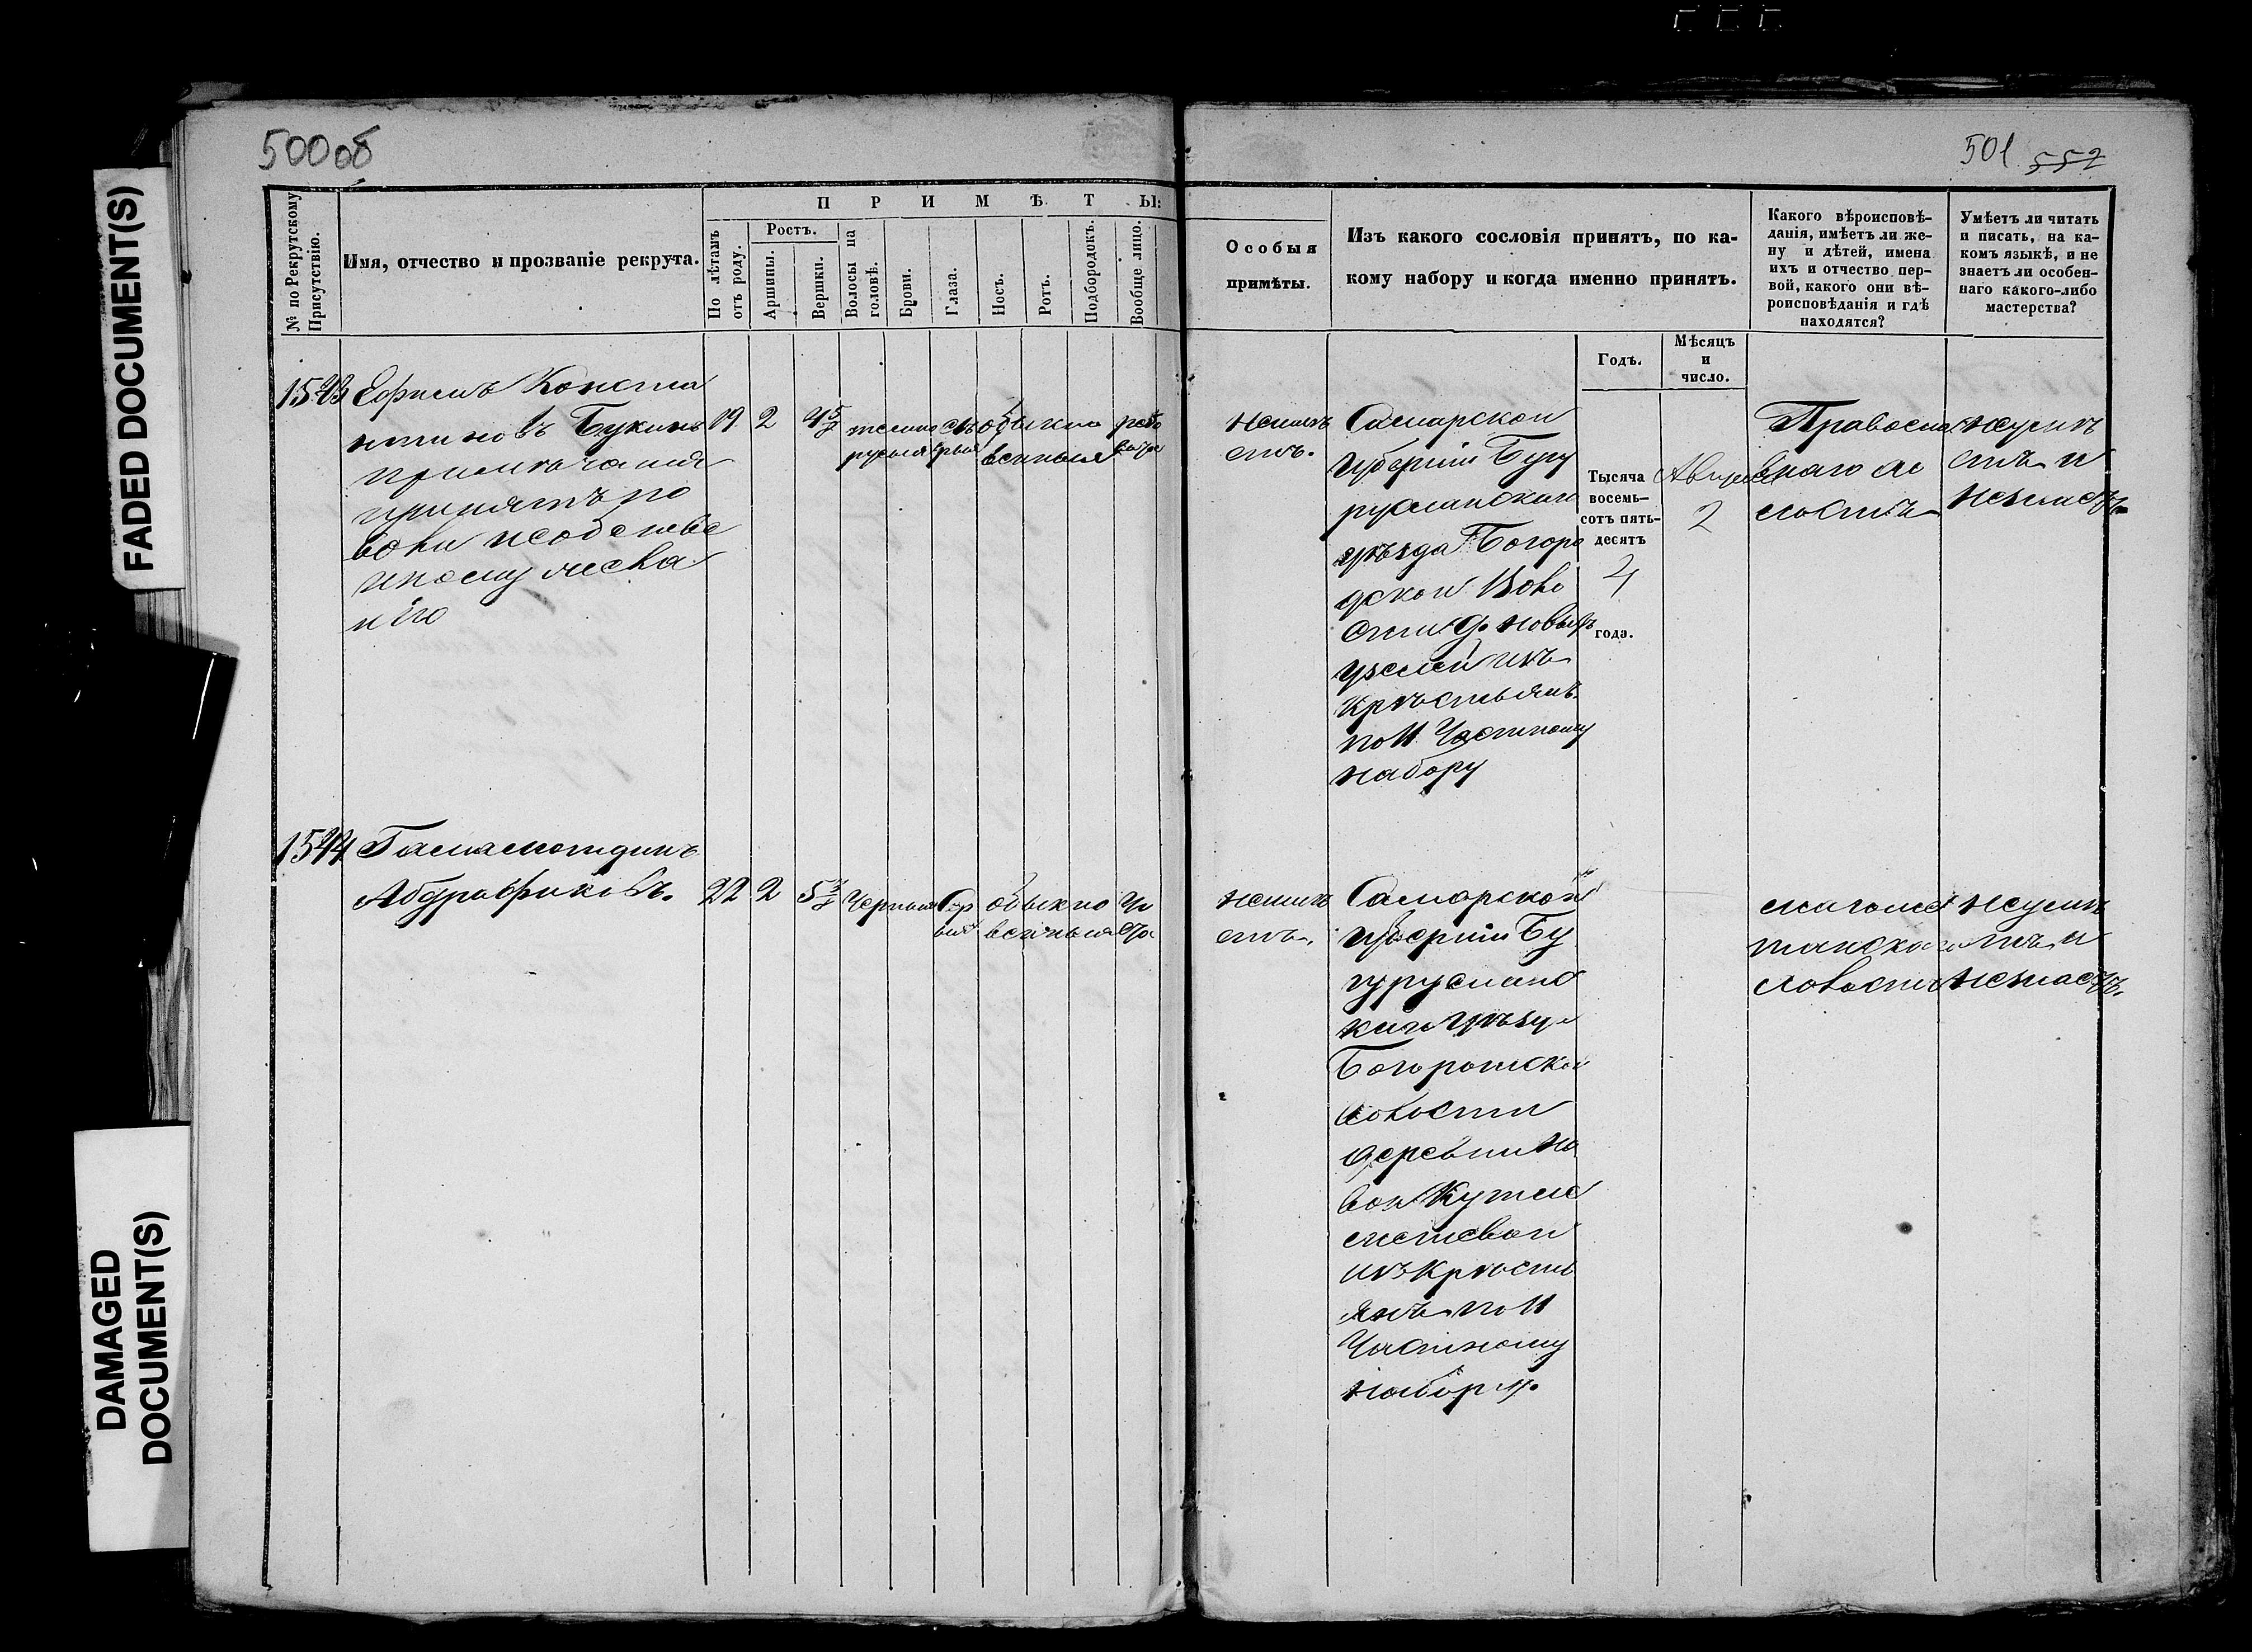 FADED DOCUMENT(S)
DAMAGED
DOCUMENT(S)
500об
501 552
№ по Рекрутскому
Присутствію.
Имя, отчество и прозваніе рекрута.
П Р И М Ѣ Т Ы:
По лѣтамъ
отъ роду.
Ростъ.
Аршины.
Вершки.
Волосы на
головѣ.
Брови.
Глаза.
Носъ.
Ротъ.
Подбородокъ.
Вообще лицо.
Особыя
примѣты.
Изъ какого сословія принятъ, по ка-
кому набору и когда именно принятъ.
Годъ.
Мѣсяцъ
и
число.
Какого вѣроисповѣ-
данія, имѣетъ ли же-
ну и дѣтей, имена
ихъ и отчество пер-
вой, какого они вѣ-
роисповѣданія и гдѣ
находятся?
Умѣетъ ли читать
и писать, на ка-
комъ языкѣ, и не
знаетъ ли особен-
наго какого-либо
мастерства?
1543
Ефимъ Конста
нтиновъ Букинъ
примѣчания
принятъ по
воли и собстве
нному жела
нію
19
2
4 5/8
темно
русыя
сѣ
рыя
обыкно
венныя
неимѣ
етъ.
Самарской
губерніи Бугу
русланскаго
уѣзда Богоро
дской Воло
сти д. новыхъ
узелей изъ
Крѣстьянъ
по 11 Частному
набору
Тысяча
восемь-
сотъ пять-
десятъ
4
года.
Апреля
2
Православнаго хо
лостъ
неумѣ
етъ и
незнаетъ
1544
Гамамотдинъ
Абдрафиковъ.
22
2
5 3/8
Черныя
Ка
рыя
обыкно
венныя
Чи
стое
неимѣ
етъ.
Самарской
губерніи Бу
гурусланс
каго уѣзда
Богоротской
волости
деревни Но
вой Кутлу
метевой
изъ Крѣсть
янъ по 11
Частному
набору.
магоме
танскаго
холостъ
неумѣ
етъ и
незнаетъ.